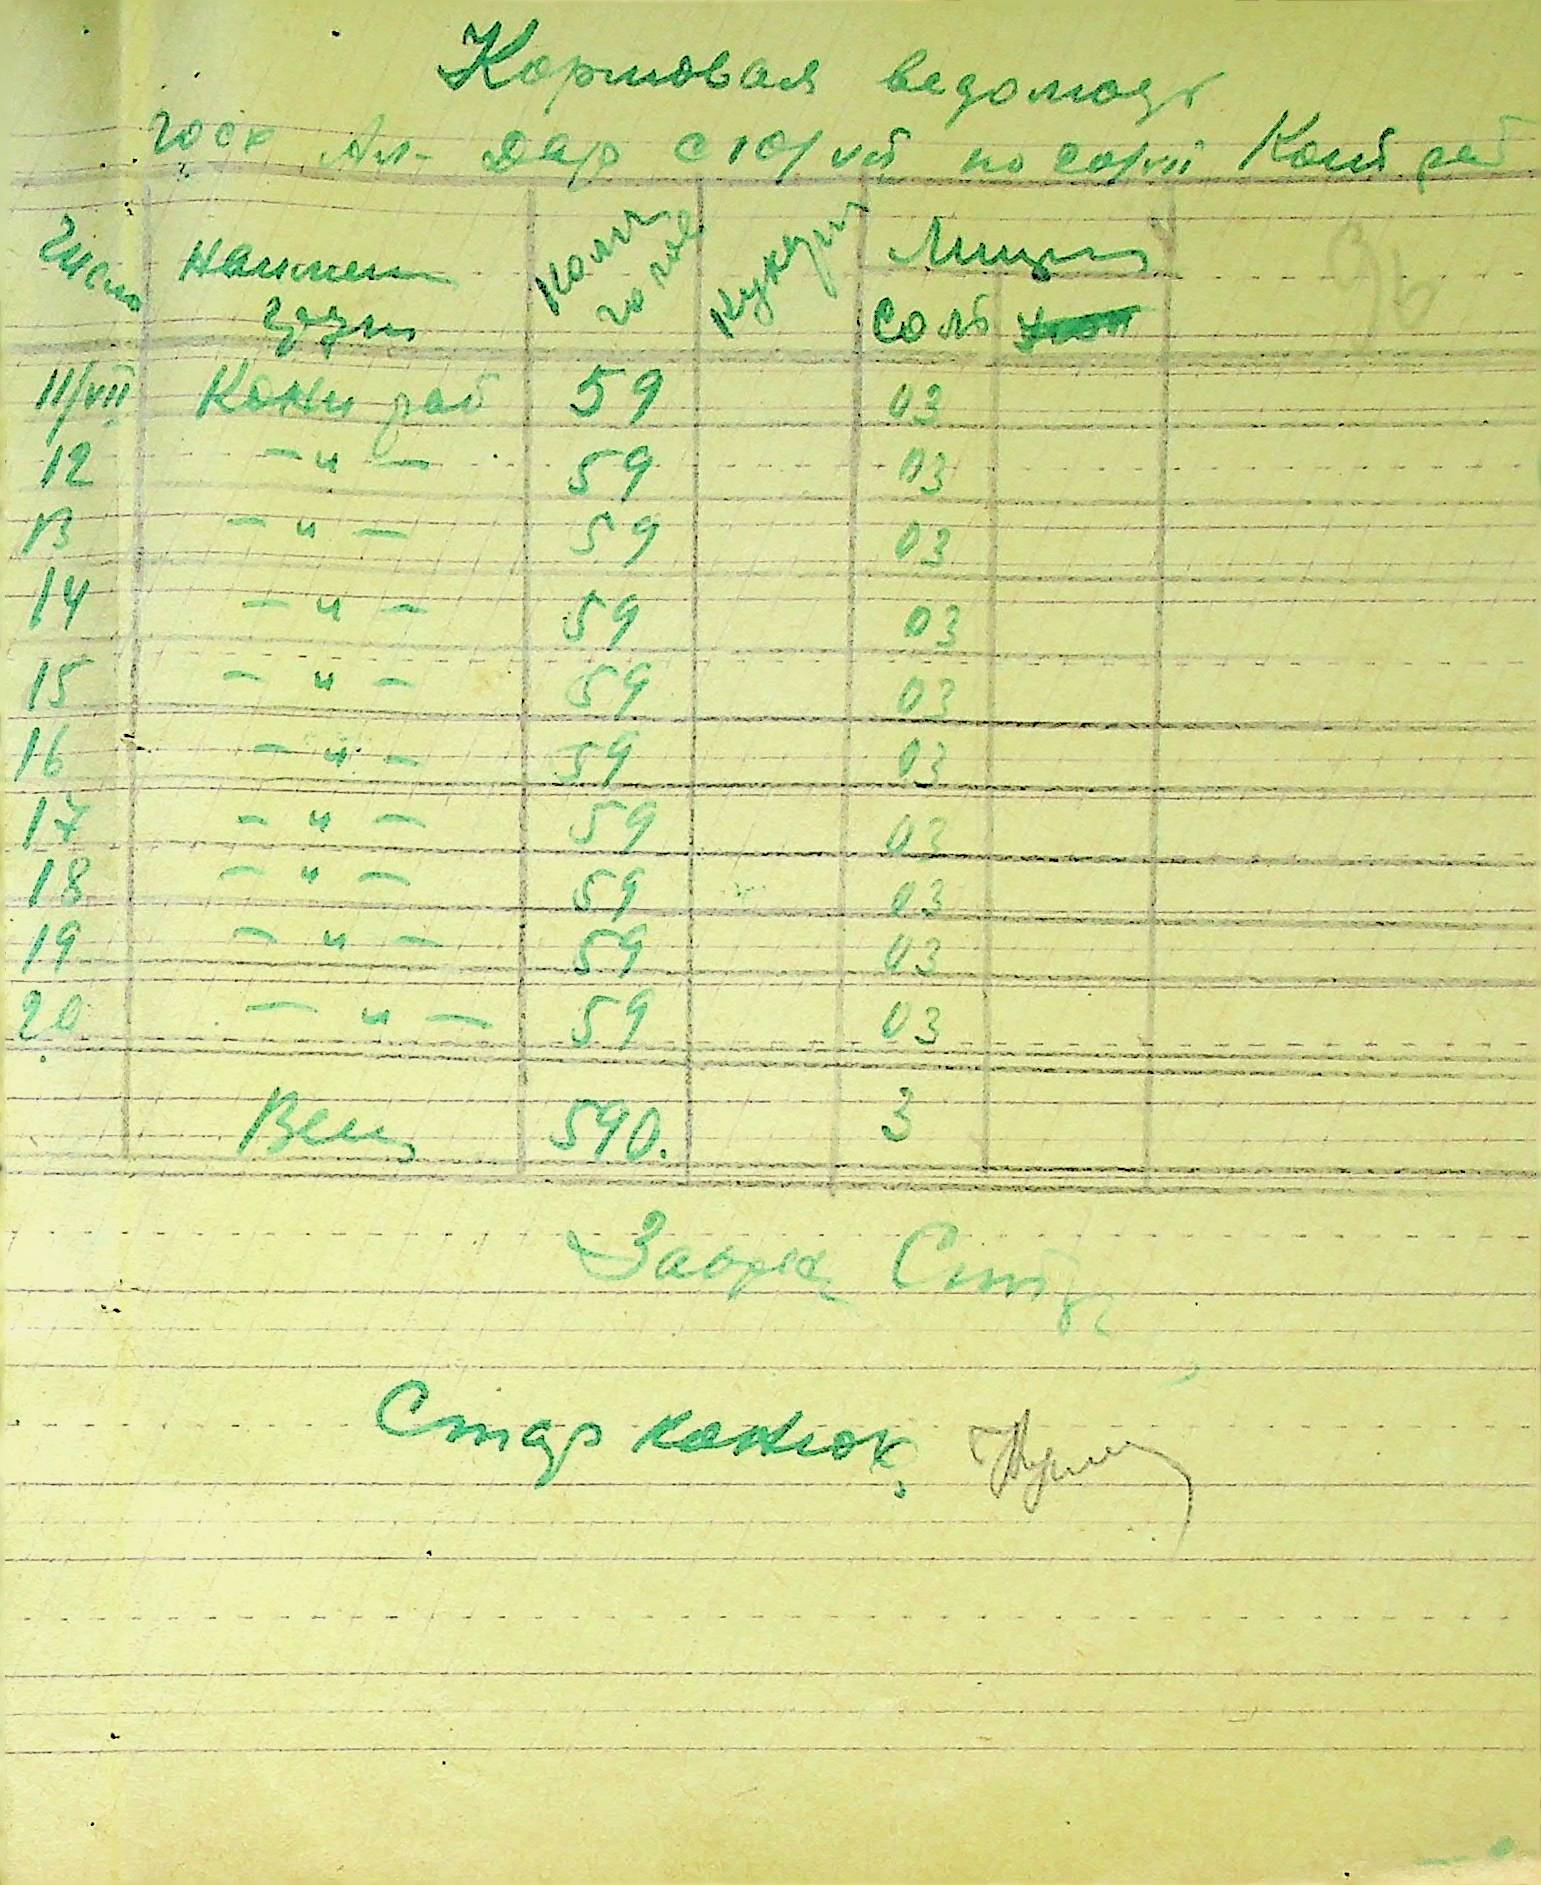 Кормовая ведомость
госк Ал- Дар с 10/VII по 20/VII Кони раб
Число Наимен групп Колич голов Кукуруз
Соль
11/VII Кони раб 59 03
12 — " — 59 03
13 — " — 59 03
14 — " — 59 03
15 — " — 59 03
16 — " — 59 03
17 — " — 59 03
18 — " — 59 03
19 — " — 59 03
20 — " — 59 03
Всего 590. 3
Стар конюх